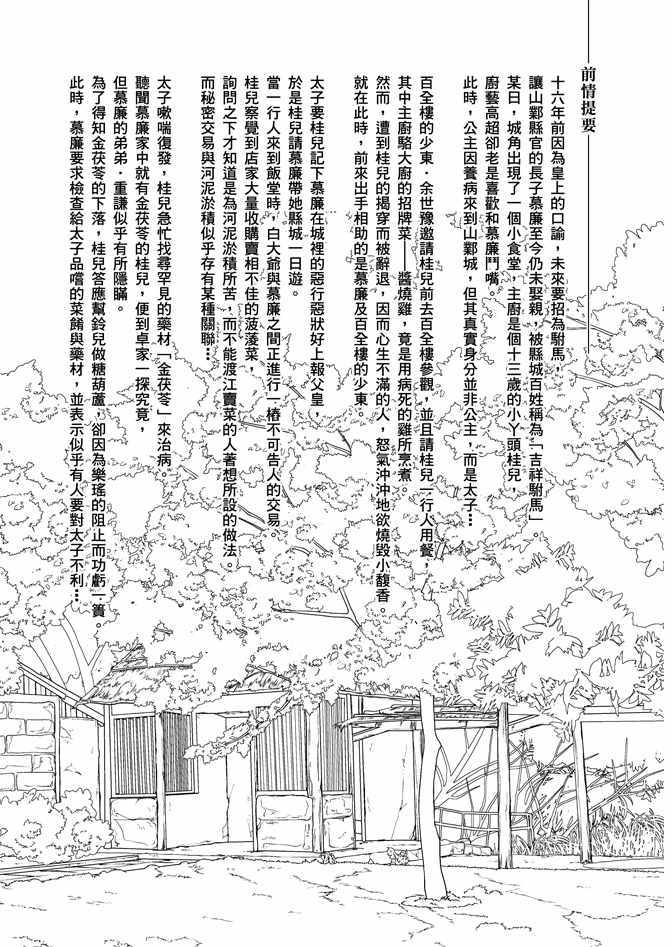 前情提要
十六年前因為皇上的口諭，未來要招為駙馬，
讓山鄴縣官的長子慕廉至今仍未娶親，被縣城百姓稱為「吉祥駙馬」。
某日，城角出現了一個小食堂，主廚是個十三歲的小丫頭桂兒，
廚藝高超卻老是喜歡和慕廉鬥嘴。
此時，公主因養病來到山鄴城，但其真實身分並非公主，而是太子…
百全樓的少東‧余世豫邀請桂兒前去百全樓參觀，並且請桂兒一行人用餐，
其中主廚駱大廚的招牌菜——醬燒雞，竟是用病死的雞所烹煮。
然而，遭到桂兒的揭穿而被辭退，因而心生不滿的人，怒氣沖沖地欲燒毀小馥香。
就在此時，前來出手相助的是慕廉及百全樓的少東。
太子要桂兒記下慕廉在城裡的惡行惡狀好上報父皇，
於是桂兒請慕廉帶她縣城一日遊。
當一行人來到飯堂時，白大爺與慕廉之間正進行一樁不可告人的交易。
桂兒察覺到店家大量收購賣相不佳的菠菠菜，
詢問之下才知道是為河泥淤積所苦，而不能渡江賣菜的人著想所設的做法。
而秘密交易與河泥淤積似乎存有某種關聯…
太子嗽喘復發，桂兒急忙找尋罕見的藥材「金茯苓」來治病。
聽聞慕廉家中就有金茯苓的桂兒，便到卓家一探究竟，
但慕廉的弟弟‧重謙似乎有所隱瞞。
為了得知金茯苓的下落，桂兒答應幫鈴兒做糖葫蘆，卻因為樂瑤的阻止而功虧一簣。
此時，慕廉要求檢查給太子品嚐的菜餚與藥材，並表示似乎有人要對太子不利…